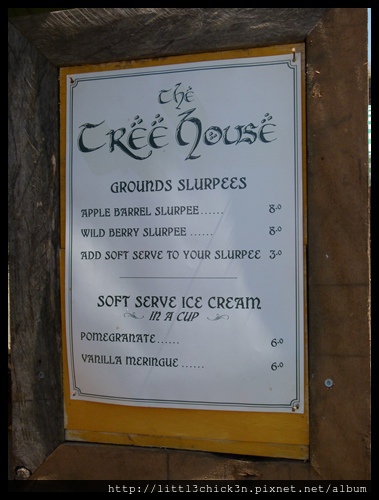 The
Tree House
GROUNDS SLURPEES
APPLE BARREL SLURPEE...... 8.0
WILD BERRY SLURPEE ...... 8.0
ADD SOFT SERVE TO YOUR SLURPEE 3.0
SOFT SERVE ICE CREAM
IN A CUP
POMEGRANATE...... 6.0
VANILLA MERINGUE ...... 6.0
http://litt13chick3n.pixnet.net/album